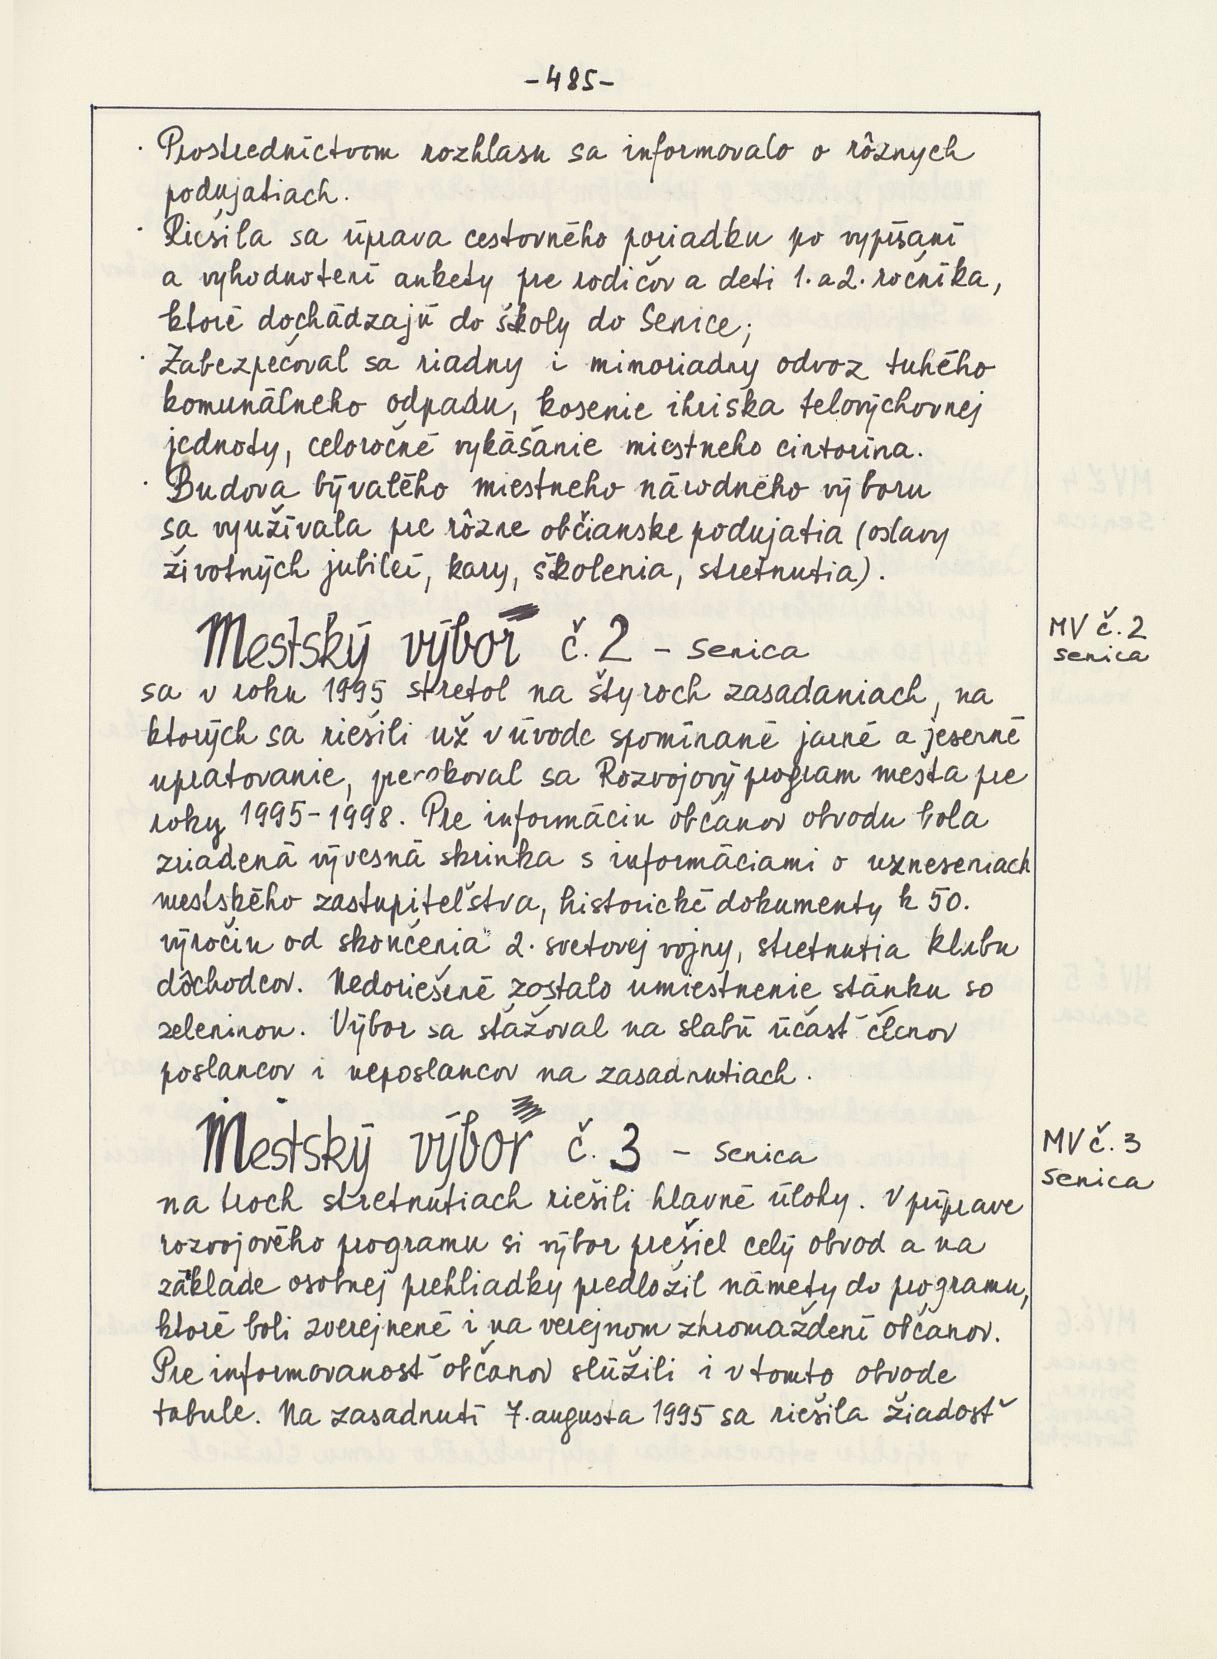 -485-
· Prostredníctvom rozhlasu sa informovalo o rôznych
podujatiach.
· Riešila sa úprava cestovného poriadku po vypísaní
a vyhodnotení ankety pre rodičov a deti 1. a 2. ročníka,
ktoré dochádzajú do školy do Senice;
· Zabezpečoval sa riadny i mimoriadny odvoz tuhého
komunálneho odpadu, kosenie ihriska telovýchovnej
jednoty, celoročné vykášanie miestneho cintorína.
· Budova bývalého miestneho národného výboru
sa využívala pre rôzne občianske podujatia (oslavy
životných jubileí, kary, školenia, stretnutia).
Mestský výbor č. 2 - Senica
MV č. 2
Senica
sa v roku 1995 stretol na štyroch zasadaniach, na
ktorých sa riešili už v úvode spomínané jarné a jesenné
upratovanie, prerokoval sa Rozvojový program mesta pre
roky 1995-1998. Pre informáciu občanov obvodu bola
zriadená vývesná skrinka s informáciami o uzneseniach
mestského zastupiteľstva, historické dokumenty k 50.
výročiu od skončenia 2. svetovej vojny, stretnutia klubu
dôchodcov. Nedoriešené zostalo umiestnenie stánku so
zeleninou. Výbor sa stažoval na slabú účasť členov
poslancov i neposlancov na zasadnutiach.
Mestský výbor č. 3 - Senica
MV č. 3
Senica
na troch stretnutiach riešili hlavné úlohy. V príprave
rozvojového programu si výbor prešiel celý obvod a na
základe osobnej prehliadky predložil námety do programu,
ktoré boli zverejnené i na verejnom zhromaždení občanov.
Pre informovanosť občanov slúžili i v tomto obvode
tabule. Na zasadnutí 7. augusta 1995 sa riešila žiadosť